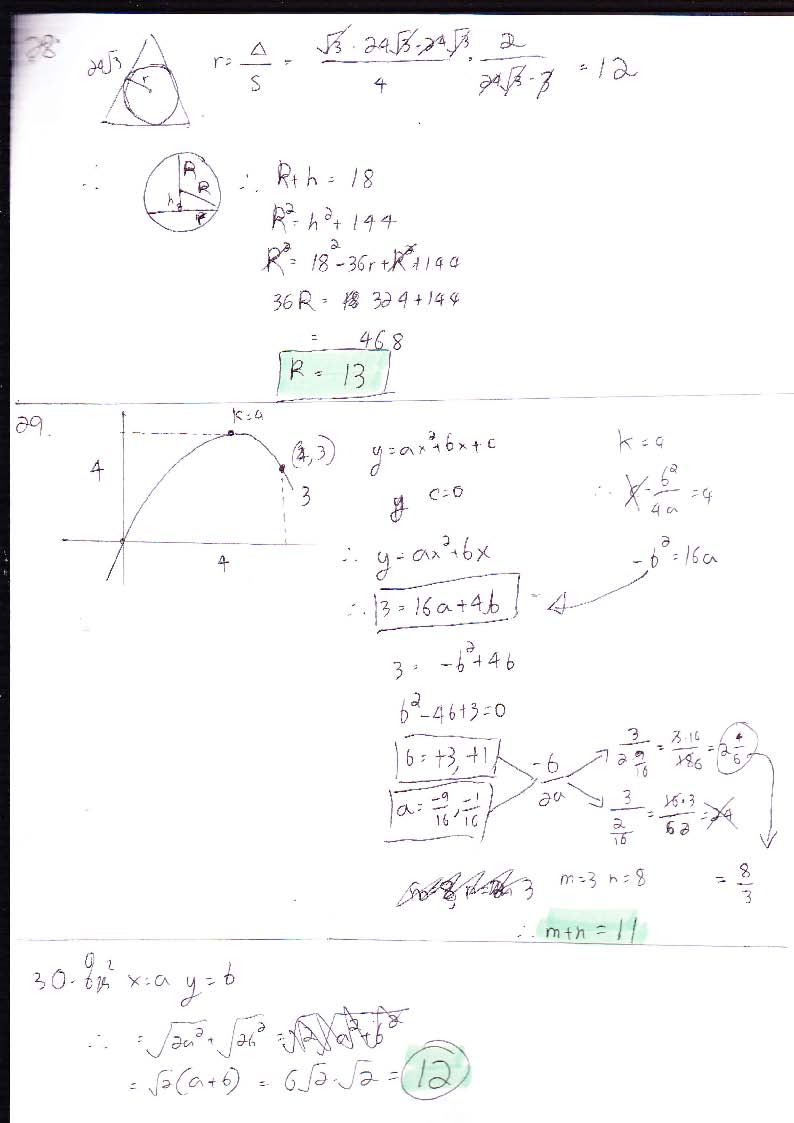 28
24√3
r
r = Δ/S = (√3 · 24√3 · 24√3)/4 · 2/(24√3 · 3) = 12
∴
R
R
h
r
∴ R+h = 18
R² = h² + 144
R² = 18² - 36r + R² + 144
36R = 324 + 144
= 468
R = 13
29.
k=4
(4, 3)
4
3
4
y = ax² + bx + c
y c=0
∴ y = ax² + bx
∴ 3 = 16a + 4b
k = 4
∴ -b²/4a = 4
-b² = 16a
3 = -b² + 4b
b² - 4b + 3 = 0
b = +3, +1
a = -9/16, -1/16
-b/2a
3/(2 9/16) = (3·16)/(18 6) = 2 4/6
3/(2/16) = (16·3)/(6 2) = 24
= 8/3
m=3 n=8
∴ m+n = 11
30. x=a y=b
∴ = √2a² + √2b² = √2 √a²+b²
= √2(a+b) = 6√2·√2 = 12